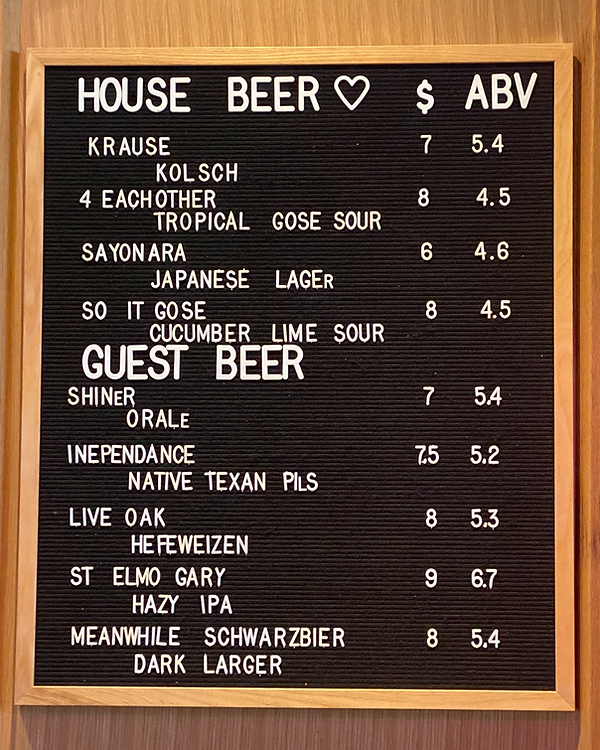 HOUSE BEER ♡ $ ABV
KRAUSE 7 5.4
KOLSCH
4 EACHOTHER 8 4.5
TROPICAL GOSE SOUR
SAYONARA 6 4.6
JAPANESE LAGEr
SO IT GOSE 8 4.5
CUCUMBER LIME SOUR
GUEST BEER
SHINeR 7 5.4
ORALe
INEPENDANCE 7.5 5.2
NATIVE TEXAN PILS
LIVE OAK 8 5.3
HEFEWEIZEN
ST ELMO GARY 9 6.7
HAZY IPA
MEANWHILE SCHWARZBIER 8 5.4
DARK LARGER